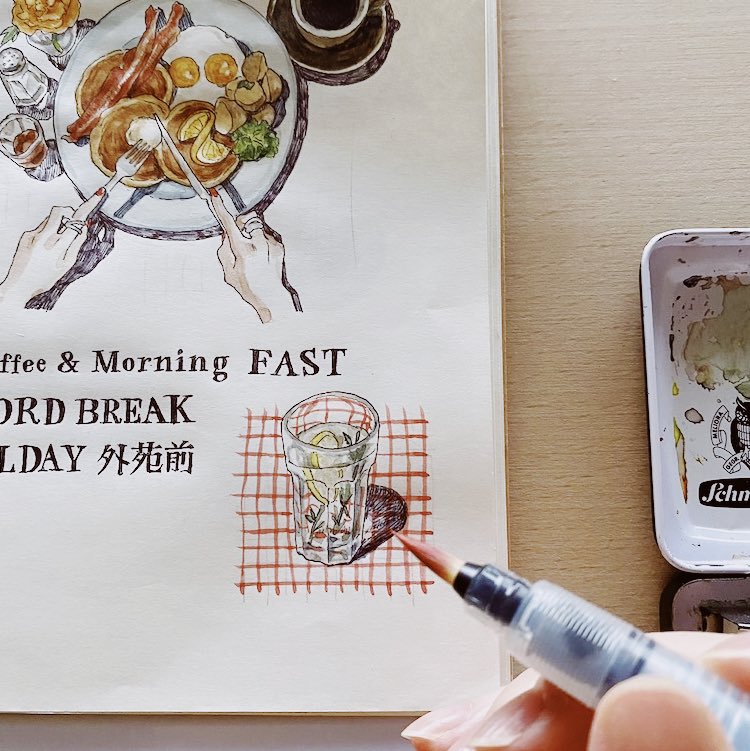 ffee & Morning FAST
ORD BREAK
LDAY 外苑前
MELIORA
Schm